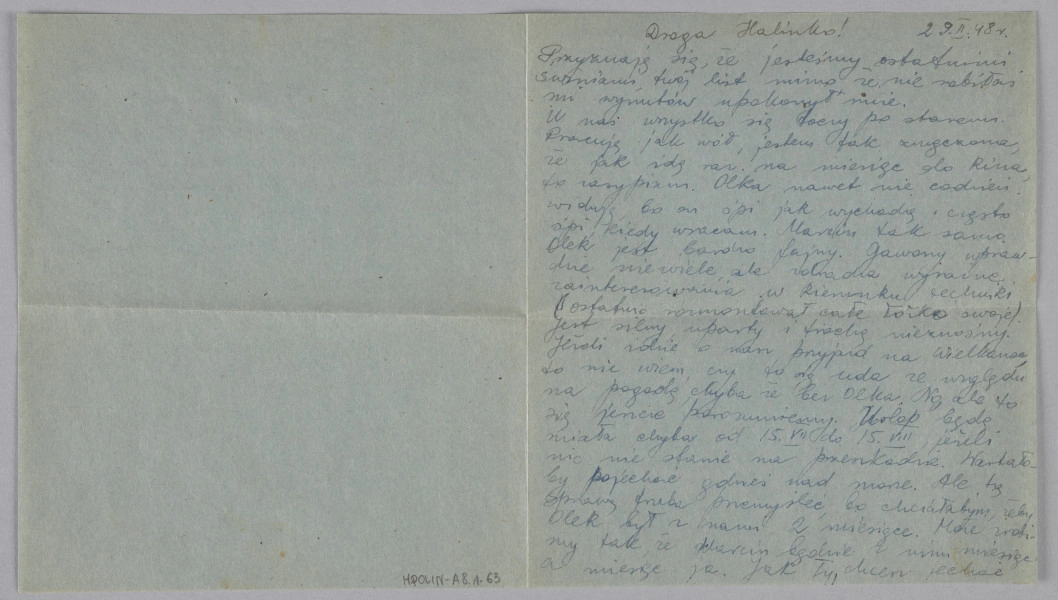 Droga Halinko! 29.II.48r.
Przyznaję się, że jesteśmy ostatnimi
świniami, twój list mimo że nie robiłaś
mi wyrzutów upokorzył mnie.
U nas wszystko się toczy po staremu.
Pracuję jak wół, jestem tak zmęczona,
że jak idę raz na miesiąc do kina,
to zasypiam. Olka nawet nie codzień
widuję bo on śpi jak wychodzę i często
śpi kiedy wracam. Marcin tak samo.
Olek jest bardzo fajny. Gaworzy wpraw-
dzie niewiele ale zdradza wyraźne
zainteresowania w kierunku techniki
(ostatnio rozmontował całe łóżko swoje).
Jest silny uparty i trochę nieznośny.
Jeżeli idzie o nasz przyjazd na Wielkanoc
to nie wiem czy to się uda ze względu
na pogodę, chyba że bez Olka. No ale to
się jeszcze porozumiemy. Urlop będę
miała chyba od 15.VII do 15.VIII, jeżeli
nic nie stanie na przeszkodzie. Wartało-
by pojechać gdzieś nad morze. Ale tę
sprawę trzeba przemyśleć, bo chciałabym, żeby
Olek był z nami 2 miesiące. Może zrobi-
my tak, że Marcin będzie z nim miesiąc
a miesiąc ja. Jak ty, chcesz jechać
HPOLIN-A8.1.63